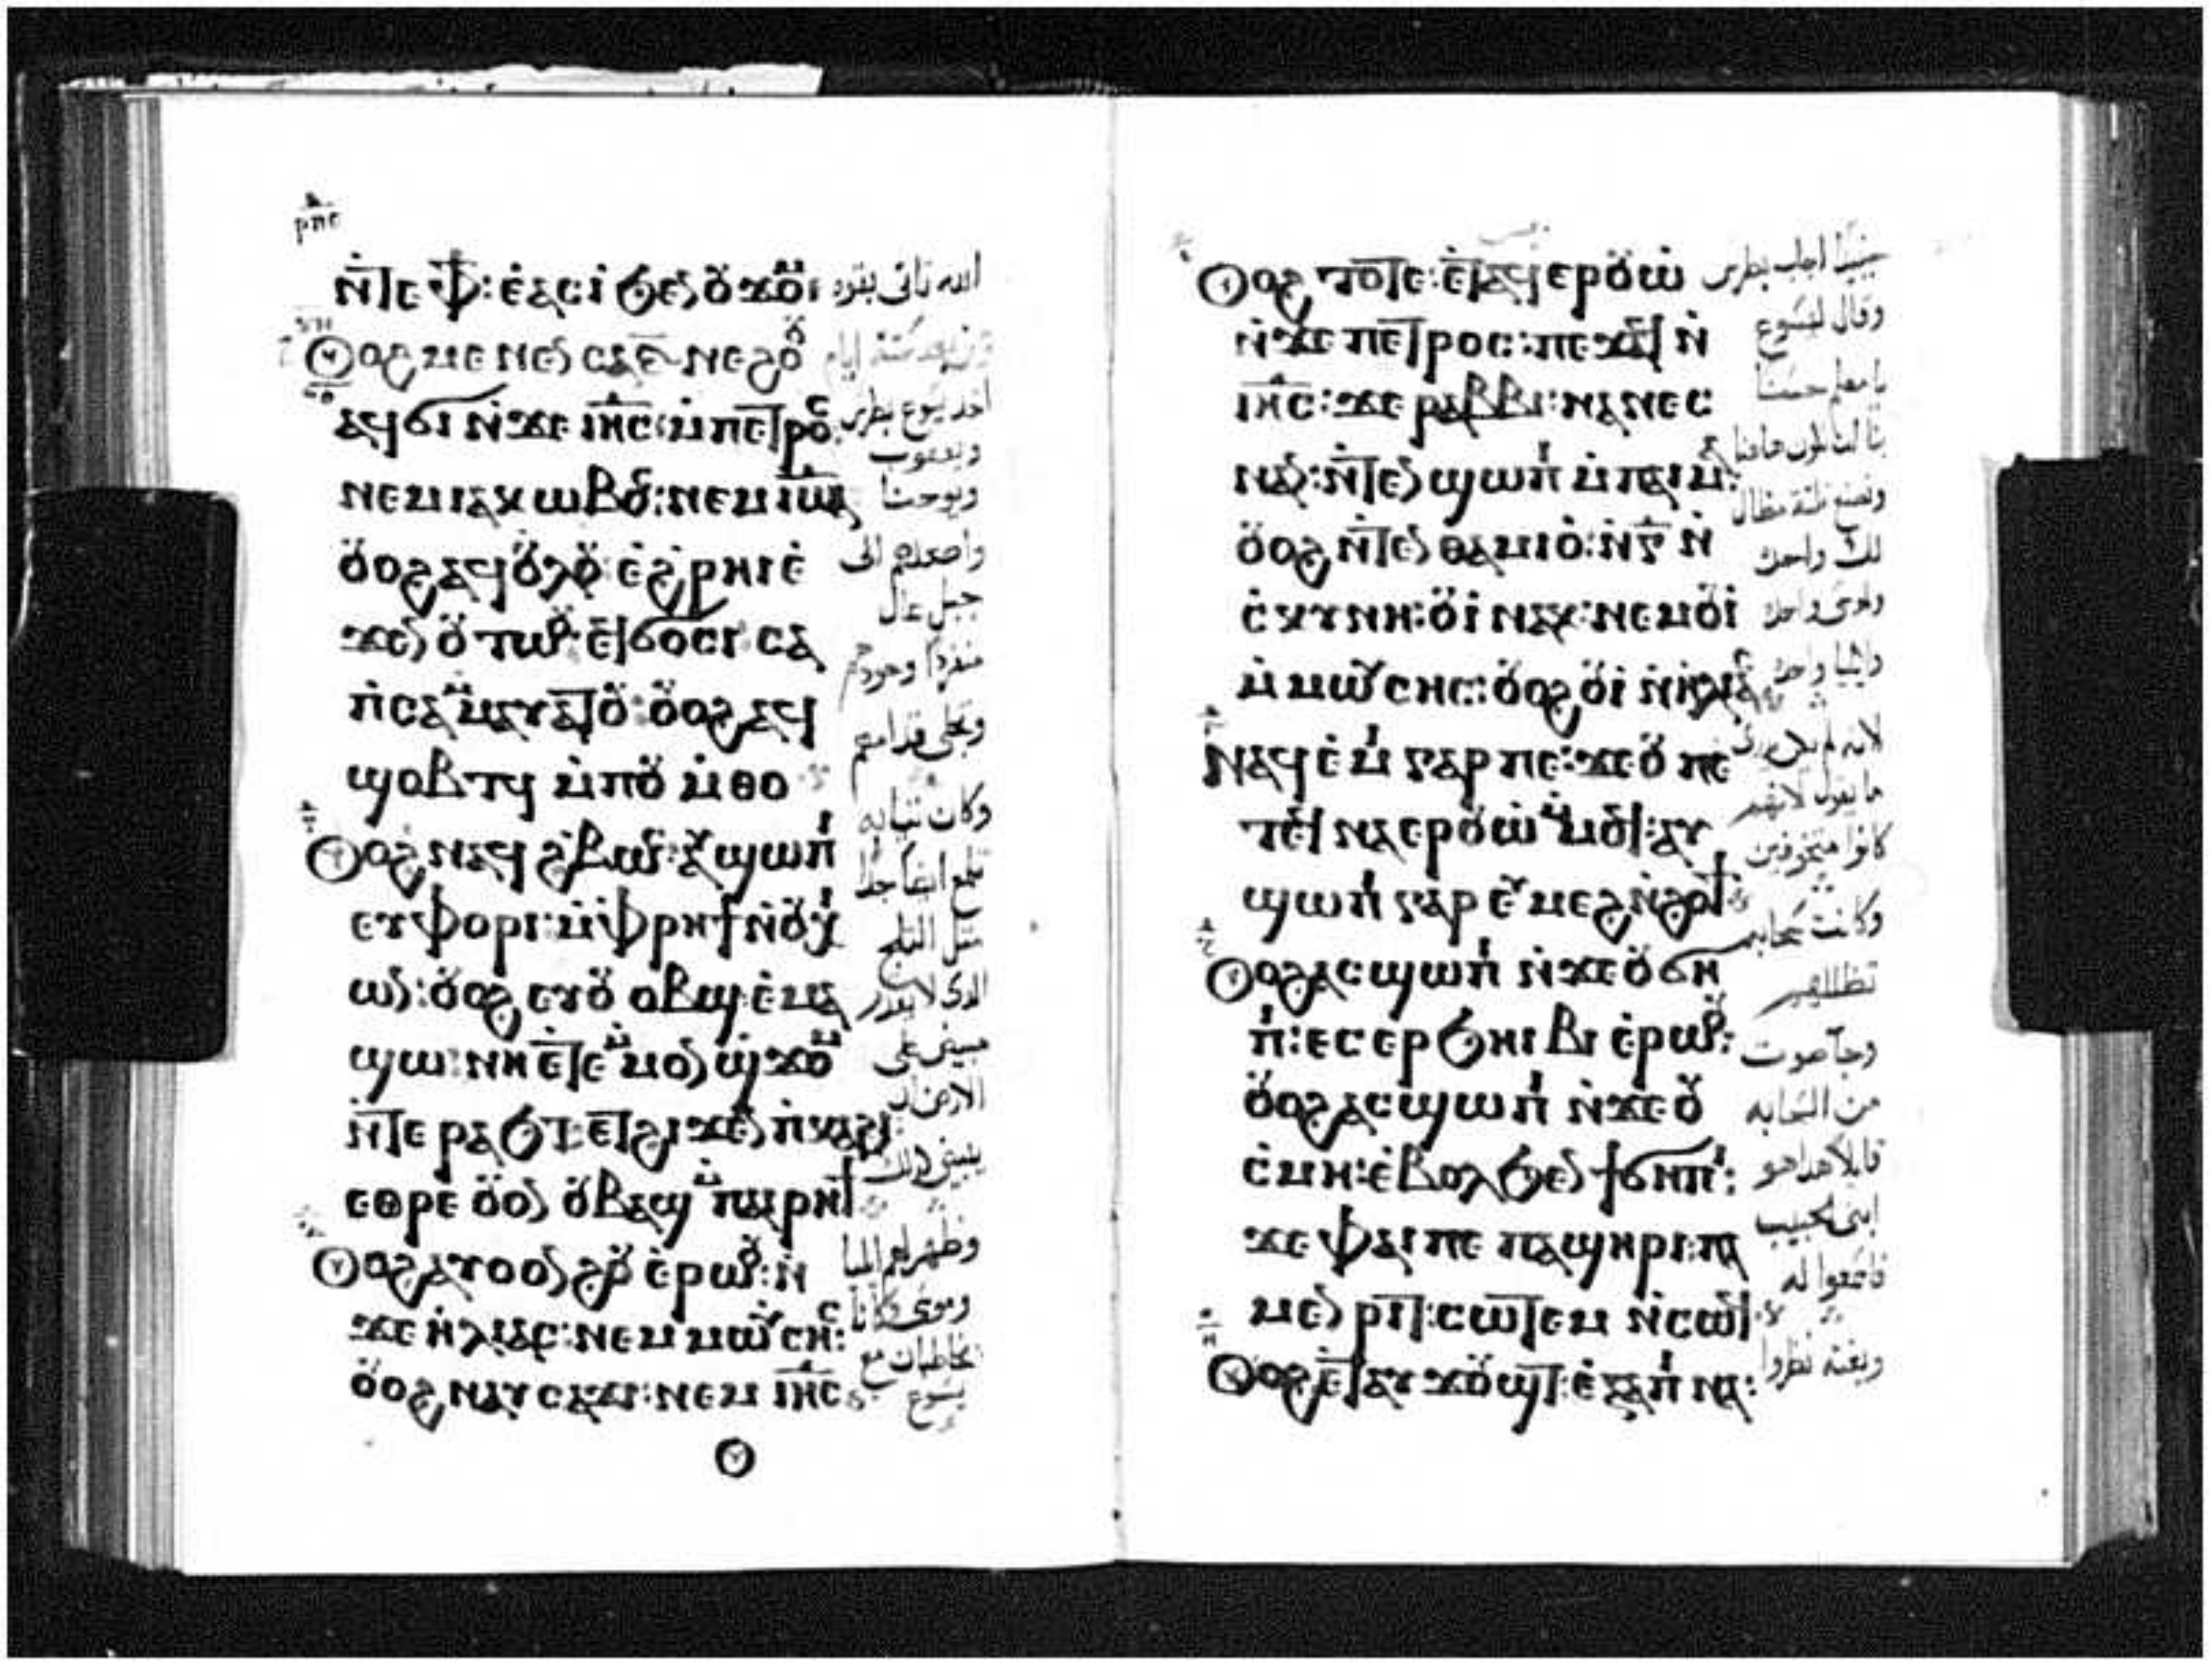 ⲣⲡⲉ
ⲛ̇ⲧⲉ ⲫϯ: ⲉ̇ⲁⲥⲓ̇ ϧⲉⲛ ⲟⲩϫⲟⲙ
ⲟⲩⲟϩ ⲙⲉⲛⲉⲛⲥⲁ ⲋ̅ ⲛⲉϩⲟⲟⲩ
ⲁϥϭⲓ ⲛ̇ϫⲉ ⲓⲏⲥ: ⲙ̇ⲡⲉⲧⲣⲟⲥ
ⲛⲉⲙ ⲓⲁⲕⲱⲃⲟⲥ: ⲛⲉⲙ ⲓⲱⲁ
ⲟⲩⲟϩ ⲁϥⲟⲗⲟⲩ ⲉ̇ϩⲣⲏⲓ ⲉ̇
ϫⲉⲛ ⲟⲩⲧⲱⲟⲩ ⲉⲧϭⲟⲥⲓ ⲥⲁ
ⲡ̇ⲥⲁ ⲙ̇ⲙⲁⲩⲁⲧⲟⲩ: ⲟⲩⲟϩ ⲁϥ
ϣⲟⲃⲧϥ ⲙ̇ⲡⲟⲩⲙ̇ⲑⲟ
ⲟⲩⲟϩ ⲛⲉϥϩⲃⲱⲥ: ⲁⲩϣⲱⲡⲓ
ⲉⲩⲫⲟⲣⲓ: ⲙ̇ⲫⲣⲏϯ ⲛ̇ⲟⲩⲭ
ⲓⲱⲛ: ⲟⲩⲟϩ ⲉⲩⲟⲩⲟⲃϣ ⲉ̇ⲙⲁ
ϣⲱ: ⲛⲏ ⲉ̇ⲧⲉ ⲙ̇ⲙⲟⲛ ϣϫⲟⲙ
ⲛ̇ⲧⲉ ⲣⲁϧⲧ: ⲉⲧϩⲓϫⲉⲛ ⲡ̇ⲕⲁϩⲓ
ⲉⲑⲣⲉ ⲟⲩⲟⲛ ⲟⲩⲃⲁϣ ⲙ̇ⲡⲁⲓⲣⲏϯ
ⲟⲩⲟϩ ⲁⲩⲟⲩⲟⲛϩⲟⲩ ⲉ̇ⲣⲱⲟⲩ: ⲛ̇
ϫⲉ ⲏ̇ⲗⲓⲁⲥ: ⲛⲉⲙ ⲙⲱⲩⲥⲏⲥ:
ⲟⲩⲟϩ ⲛⲁⲩⲥⲁϫⲓ: ⲛⲉⲙ ⲓⲏⲥ
الله تاتى بقوه
ومن بعد ستة ايام
اخد يسوع بطرس
ويعقوب
ويوحنا
واصعدهم الى
جبل عال
منفردا وحودهم
وتجلى قدامهم
وكانت ثيابه
تلمع ابيضا جدا
مثل الثلج
الدى لا يقدر
مبيض على
الارض ان
يبيض كدلك
وظهر لهم ايليا
وموسى وكانا
يخاطبان مع
يسوع
ⲟⲩⲟϩ ⲧⲟⲧⲉ: ⲉ̇ⲧⲁϥⲉⲣⲟⲩⲱ̇
ⲛ̇ϫⲉ ⲡⲉⲧⲣⲟⲥ: ⲡⲉϫⲁϥ ⲛ̇
ⲓⲏⲥ: ϫⲉ ⲣⲁⲃⲃⲓ: ⲛⲁⲛⲉⲥ
ⲛⲁⲛ: ⲛ̇ⲧⲉⲛϣⲱⲡⲓ ⲙ̇ⲡⲁⲓⲙⲁ:
ⲟⲩⲟϩ ⲛ̇ⲧⲉⲛⲑⲁⲙⲓⲟ̇: ⲛ̇ⲅ̅ ⲛ̇
ⲥ̇ⲕⲩⲛⲏ: ⲟⲩⲓ̇ ⲛⲁⲕ: ⲛⲉⲙ ⲟⲩⲓ̇
ⲙ̇ⲙⲱⲩⲥⲏⲥ: ⲟⲩⲟϩ ⲟⲩⲓ̇ ⲛ̇ⲏⲗⲓⲁⲥ
ⲛⲁϥⲉ̇ⲙⲓ ⲅⲁⲣ ⲡⲉ: ϫⲉ ⲟⲩ ⲡⲉ
ⲧⲉϥⲛⲁⲉⲣⲟⲩⲱ̇ ⲙ̇ⲙⲟϥ: ⲁⲩ
ϣⲱⲡⲓ ⲅⲁⲣ ⲉⲩⲙⲉϩ ⲛ̇ϩⲟϯ
ⲟⲩⲟϩ ⲁⲥϣⲱⲡⲓ ⲛ̇ϫⲉ ⲟⲩϭⲏ
ⲡⲓ: ⲉⲥⲉⲣϧⲏⲓⲃⲓ ⲉ̇ⲣⲱⲟⲩ:
ⲟⲩⲟϩ ⲁⲥϣⲱⲡⲓ ⲛ̇ϫⲉ ⲟⲩ
ⲥ̇ⲙⲏ: ⲉ̇ⲃⲟⲗ ϧⲉⲛ ϯϭⲏⲡⲓ:
ϫⲉ ⲫⲁⲓ ⲡⲉ ⲡⲁϣⲏⲣⲓ: ⲡⲁ
ⲙⲉⲛⲣⲓⲧ: ⲥⲱⲧⲉⲙ ⲛ̇ⲥⲱϥ
ⲟⲩⲟϩ ⲉ̇ⲧⲁⲩϫⲟⲩϣⲧ: ⲉ̇ⲝⲁⲡⲓⲛⲁ:
حينيدا اجاب بطرس
وقال ليسوع
يا معلم حسنا
بنا لنا نكون هاهنا
ونصنع ثلثة مظال
لك واحده
ولموسى واحده
وايليا واحده
لانه لم يكن يدرى
ما يقول لانهم
كانوا متخوفين
وكانت سحابه
تظللهم
وجا صوت
من السحابه
قايلا هدا هو
ابنى الحبيب
فاسمعوا له
وبغته نظروا